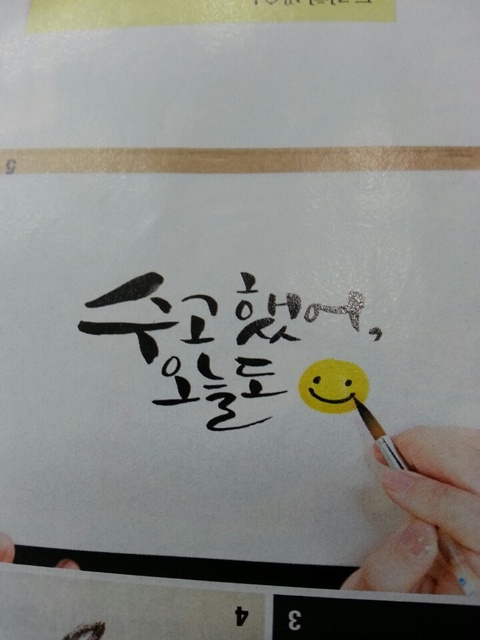 수고했어,
오늘도
5
4
3